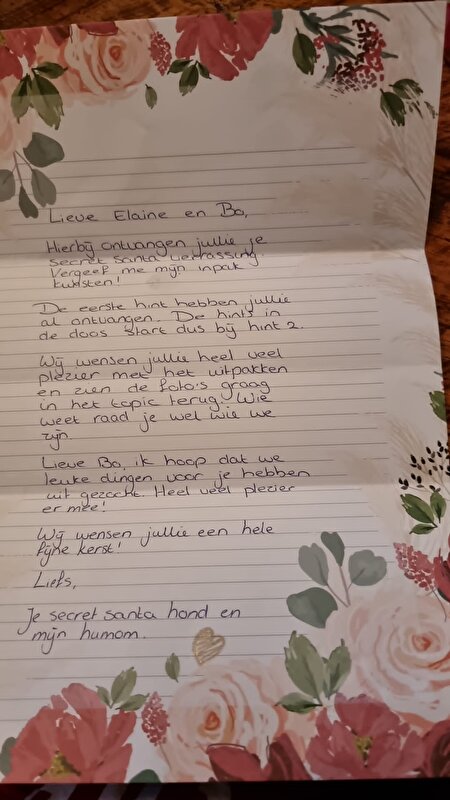 Lieve Elaine en Bo,
Hierbij ontvangen jullie je
secret santa verrassing.
Vergeef me mijn inpak
kunsten!
De eerste hint hebben jullie
al ontvangen. De hints in
de doos start dus bij hint 2.
Wij wensen jullie heel veel
plezier met het uitpakken
en zien de foto's graag
in het topic terug. Wie
weet raad je wel wie we
zijn
Lieve Bo, ik hoop dat we
leuke dingen voor je hebben
uit gezocht. Heel veel plezier
er mee!
Wij wensen jullie een hele
fijne kerst!
Liefs,
Je secret santa hond en
mijn humom.